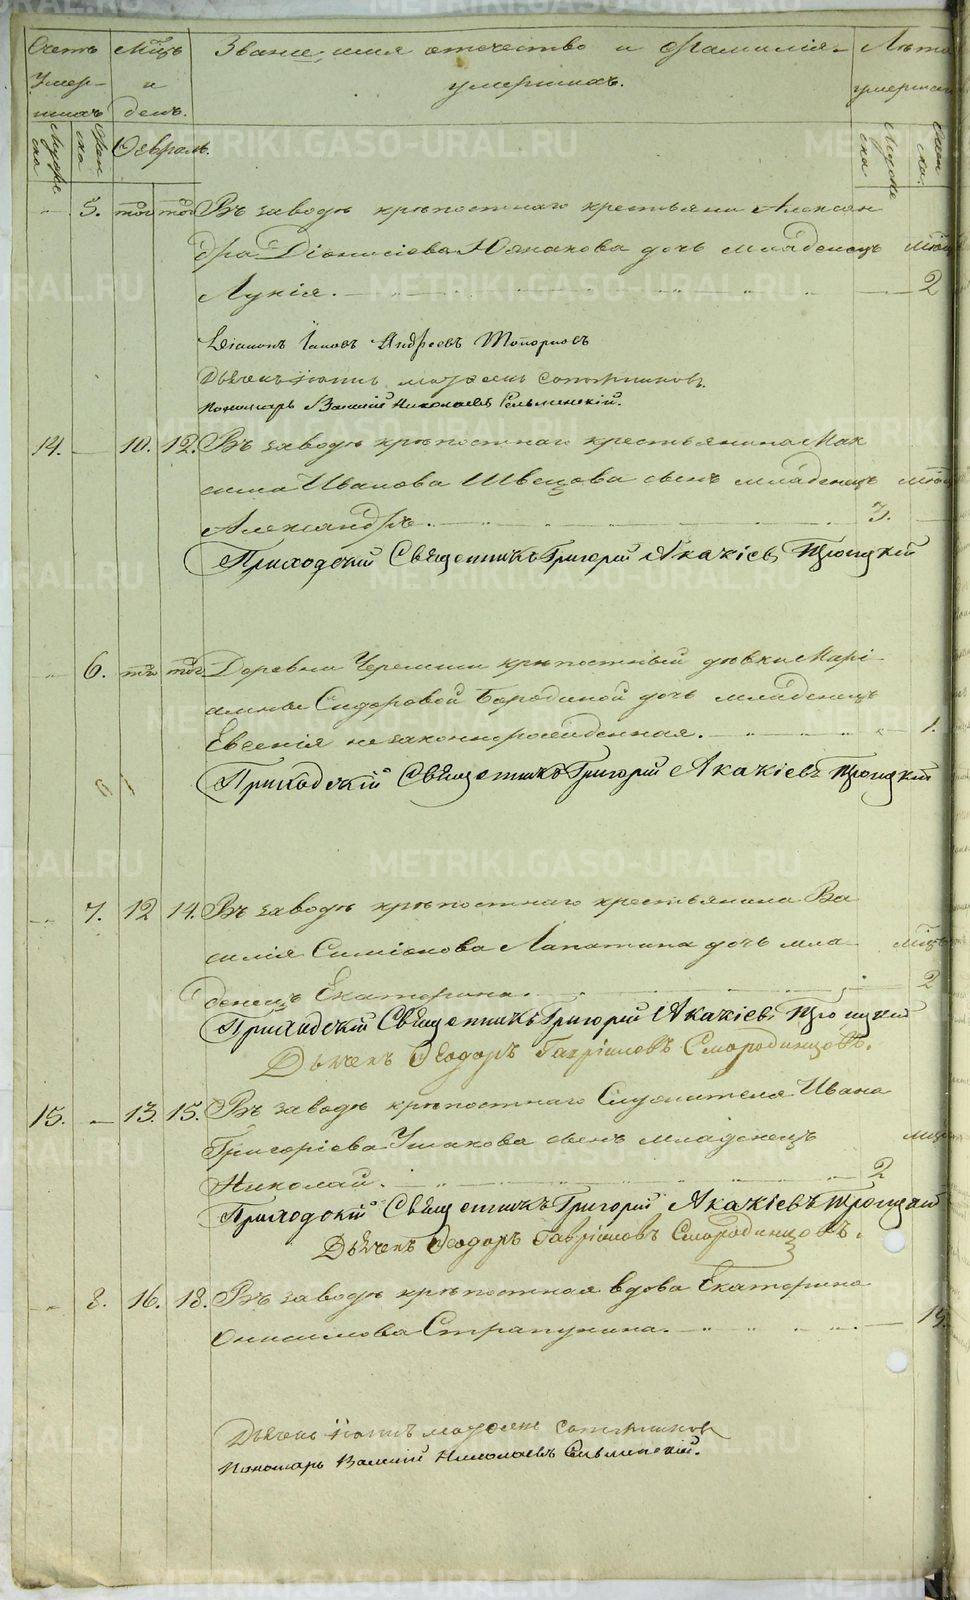 Счетъ Мсцъ Званіе, имя отечество и фамилія Лѣта
Умер- и умершихъ. умершихъ
шихъ день.
Мужеска Женска Февраль. Мужеска Женска
5. тогъ тогъ Въ заводѣ крѣпостнаго крестьяни Алексан
дра Діонисіева Южакова дочь младенецъ
Лукія. 2
Діаконъ Іаковъ Андреевъ Топорковъ
Дьячекъ Іоаннъ Сапожниковъ.
Пономарь Василій Николаевъ Сельменскій.
14. 10. 12. Въ заводѣ крѣпостнаго крестьянина Мак
сима Иванова Швецова сынъ младенецъ
Александръ. 3.
Приходскій Священникъ Григорій Акакіевъ Троицкій
6. тогъ тогъ Деревни Черемши крѣпостный дѣвки Марі-
амны Сидоровой Бородиной дочь младенецъ
Евгенія незаконнорожденная. 1.
Приходскій Священникъ Григорій Акакіевъ Троицкій
7. 12 14. Въ заводѣ крѣпостнаго крестьянина Ва
силія Симіонова Лапатина дочь мла-
денецъ Екатерина. 2
Приходскій Священникъ Григорій Акакіевъ Троицкій
Дьячекъ Ѳеодоръ Гавріиловъ Смородинцовъ.
15. 13. 15. Въ заводѣ крѣпостнаго Служителя Ивана
Григоріева Ушакова сынъ младенецъ
Николай. 2
Приходскій Священникъ Григорій Акакіевъ Троицкій
Дьячекъ Ѳеодоръ Гавріиловъ Смородинцовъ.
8. 16. 18. Въ заводѣ крѣпостная вдова Екатерина
Онисимова Страпунина.
Дьячекъ Іоаннъ Сапожниковъ
Пономарь Василій Николаевъ Сельменскій.
METRIKI.GASO-URAL.RU